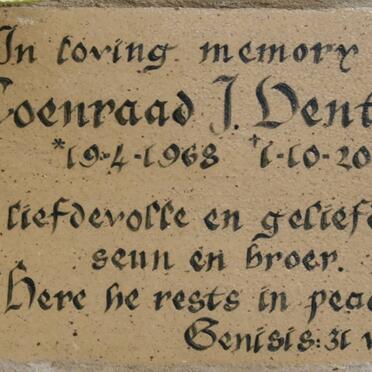 In loving memory
Coenraad J. Vent
*19-4-1968 †1-10-20
liefdevolle en gelief
seun en broer.
Here he rests in pea
Genisis: 31 v